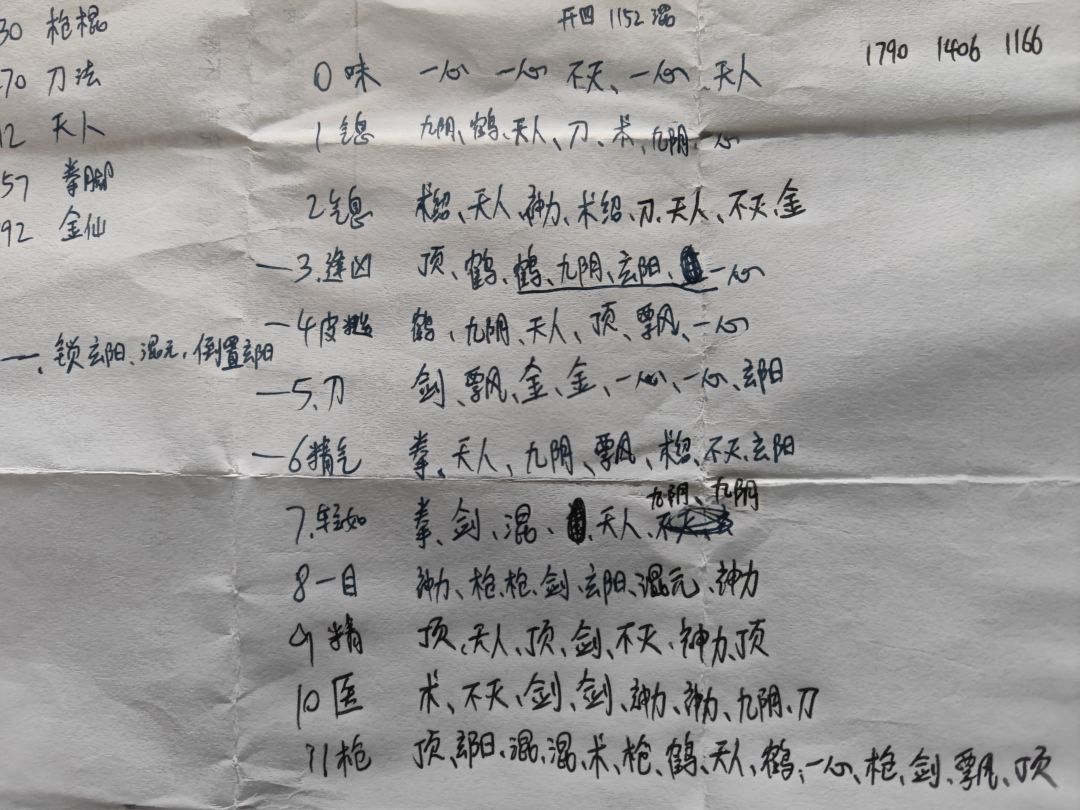 开四 1152 混
1790 1406 1166
30 枪棍
70 刀法
12 天人
57 拳脚
92 金仙
一、锁玄阳、混元,倒置玄阳
0 味 一心 一心 不灭、一心、天人
1 气息 九阴、鹤、天人、刀、术、九阴、一心
2 气息 天人、神力、术 刀、天人、不灭、金
3、逢凶 顶、鹤、鹤、九阴、玄阳、一心
4 皮 鹤、九阴、天人、顶、飘、一心
5、刀 剑、飘、金、金、一心、一心、玄阳
6 精气 拳、天人、九阴、飘、不灭、玄阳
九阴、九阴
7、轻如 拳、剑、混、天人、
8 一目 神力、枪、枪、剑、玄阳、混元、神力
9 精 顶、天人、顶、剑、不灭、神力、顶
10 医 术、不灭、剑、剑、神力、神力、九阴、刀
11 枪 顶、玄阳、混、混、术、枪、鹤、天人、鹤、一心、枪、剑、飘、顶